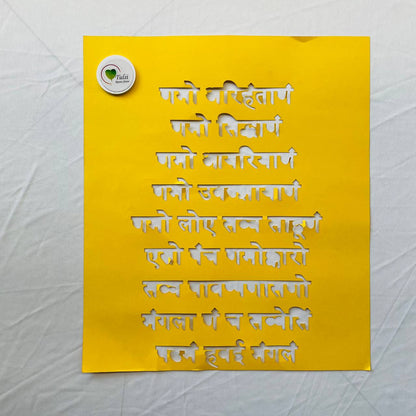 Tulsi
णमो अरिहंताणं
णमो सिद्धाणं
णमो आयरियाणं
णमो उवज्झायाणं
णमो लोए सव्व साहूणं
एसो पंच णमोक्कारो
सव्व पावप्पणासणो
मंगला णं च सव्वेसिं
पढमं हवई मंगलं